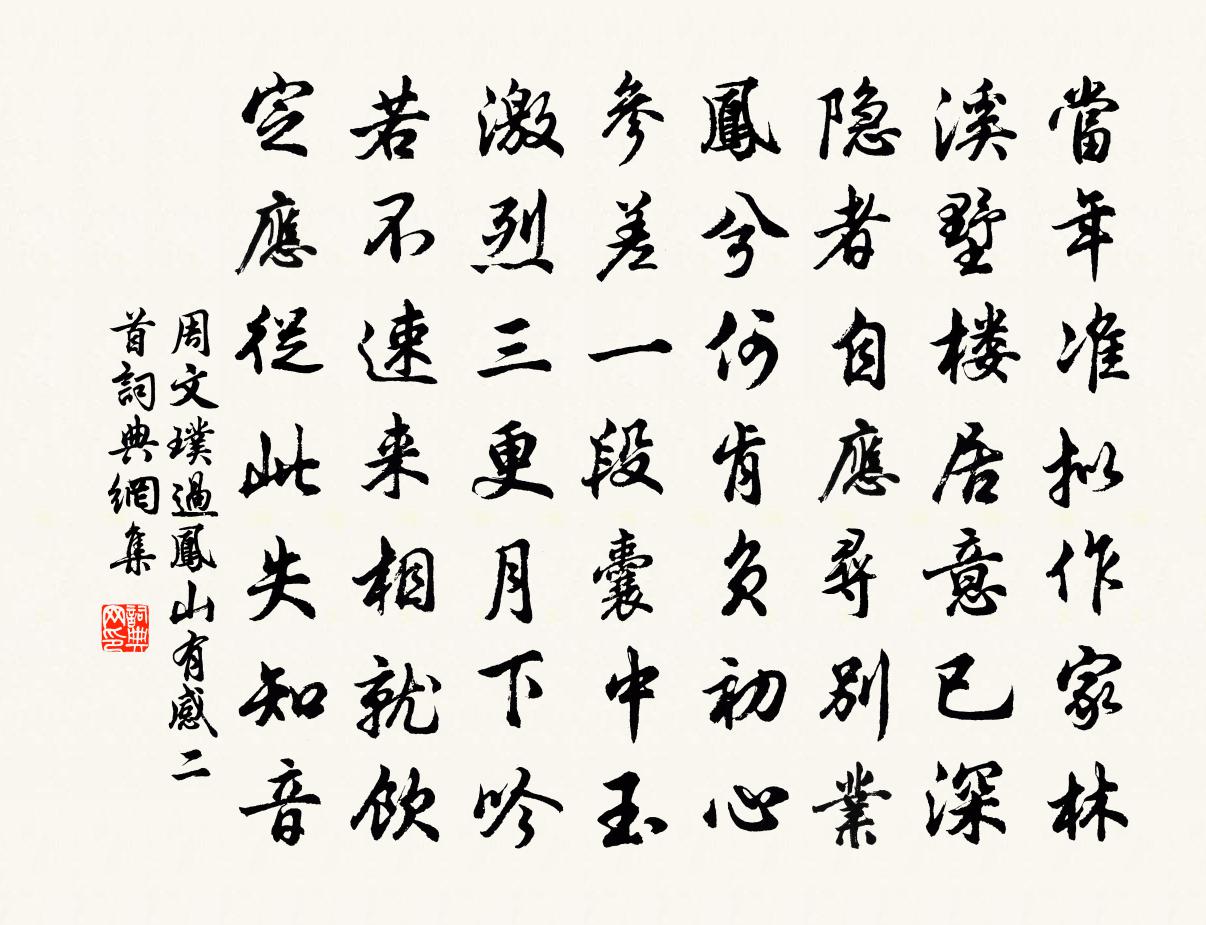 當年准拟作家林
溪墅楼居意已深
隐者自應尋別業
鳳兮何肯負初心
參差一段囊中玉
激烈三更月下吟
若不速来相就飲
定應從此失知音
周文璞過鳳山有感二
首詞典網集
詞典网印